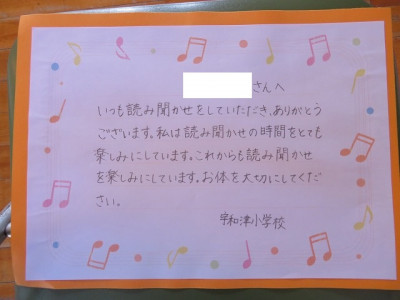 さんへ
いつも読み聞かせをしていただき、ありがとう
ございます。私は読み聞かせの時間をとても
楽しみにしています。これからも読み聞かせ
を楽しみにしています。お体を大切にしてくだ
さい。
宇和津小学校